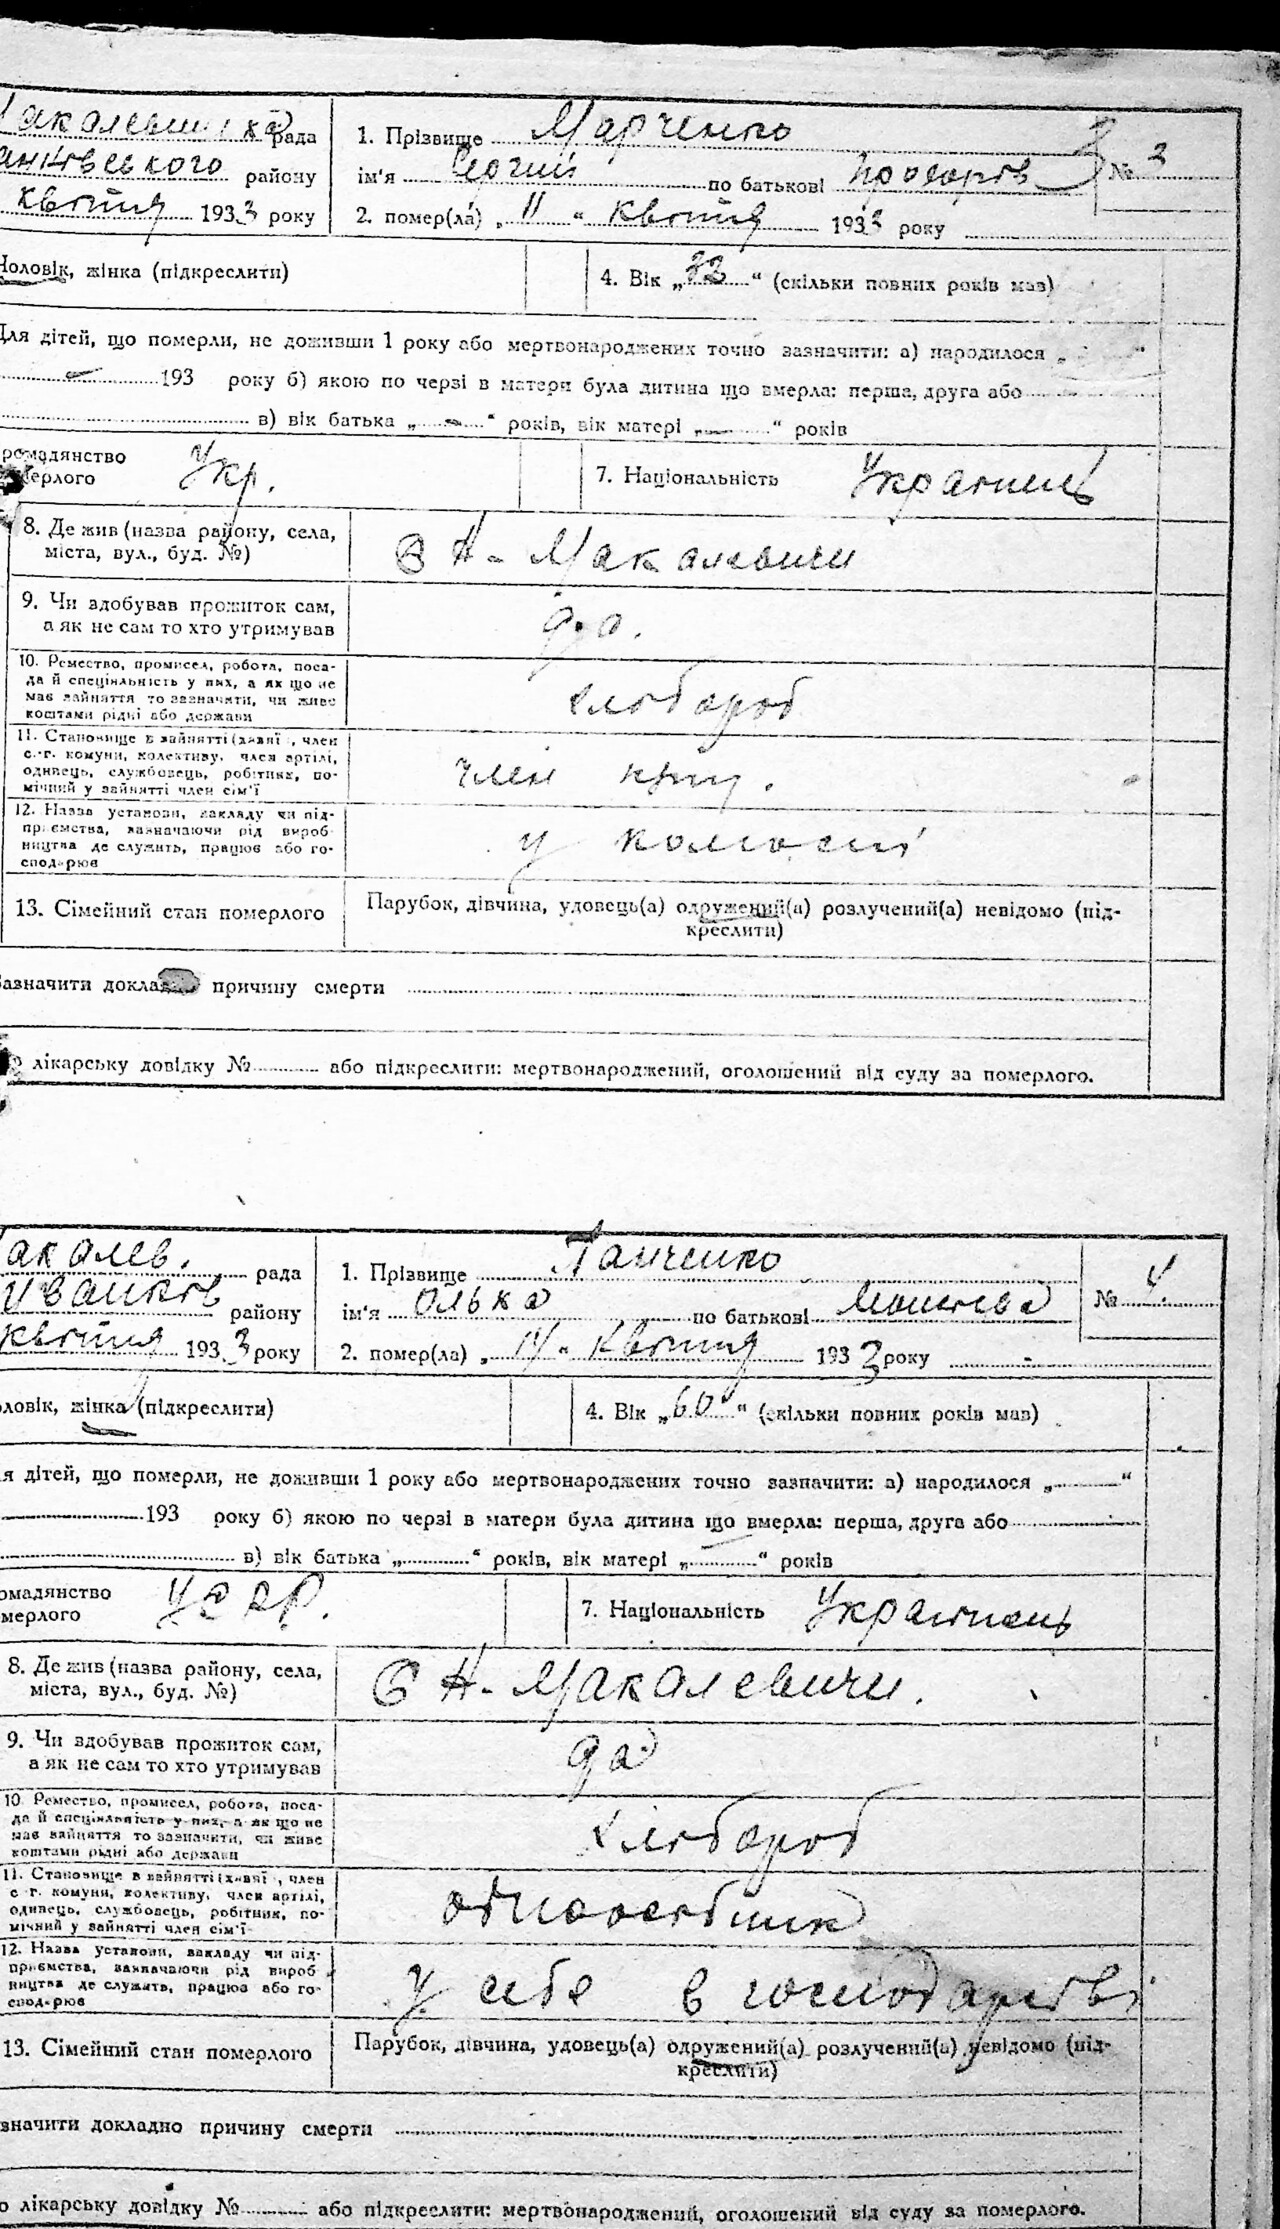 рада 1. Прізвище Марченко
району ім'я Сергій по батькові № 3
квітня 1933 року 2. помер(ла) „11“ квітня 1933 року
Чоловік, жінка (підкреслити) 4. Вік „“ (скільки повних років мав)
Для дітей, що померли, не доживши 1 року або мертвонароджених точно зазначити: а) народилося „ “
193 року б) якою по черзі в матери була дитина що вмерла: перша, друга або
в) вік батька „—“ років, вік матері „—“ років
громадянство
померлого Укр. 7. Національність Украинец
8. Де жив (назва району, села,
міста, вул., буд. №) Н-Макалевичи
9. Чи здобував прожиток сам,
а як не сам то хто утримував да.
10. Ремество, промисел, робота, поса-
да й спеціяльність у них, а як що не
має зайняття то зазначити, чи живе
коштами рідні або держави хлібороб
11. Становище в зайнятті (хазяї, член
с.-г. комуни, колективу, член артілі,
одинець, службовець, робітник, по-
мічний у зайнятті член сім'ї член
12. Назва установи, закладу чи під-
приємства, зазначаючи рід вироб-
ництва де служить, працює або го-
сподарює у колгоспі
13. Сімейний стан померлого Парубок, дівчина, удовець(а) одружений(а) розлучений(а) невідомо (під-
креслити)
Зазначити докладно причину смерти
лікарську довідку № або підкреслити: мертвонароджений, оголошений від суду за померлого.
акалев. рада 1. Прізвище Панченко
Иванков району ім'я Олька по батькові № 4.
квітня 1933 року 2. помер(ла) „14“ квітня 1933 року
оловік, жінка (підкреслити) 4. Вік „60“ (скільки повних років мав)
я дітей, що померли, не доживши 1 року або мертвонароджених точно зазначити: а) народилося „—“
193 року б) якою по черзі в матери була дитина що вмерла: перша, друга або
в) вік батька „“ років, вік матері „“ років
омадянство
мерлого УСРР. 7. Національність Украинець
8. Де жив (назва району, села,
міста, вул., буд. №) Н-Макалевичи.
9. Чи здобував прожиток сам,
а як не сам то хто утримував да
10. Ремество, промисел, робота, поса-
да й спеціяльність у них, а як що не
має зайняття то зазначити, чи живе
коштами рідні або держави хлібороб
11. Становище в зайнятті (хазяї, член
с.-г. комуни, колективу, член артілі,
одинець, службовець, робітник, по-
мічний у зайнятті член сім'ї одноосібник
12. Назва установи, закладу чи під-
приємства, зазначаючи рід вироб-
ництва де служить, працює або го-
сподарює у себе в господарстві
13. Сімейний стан померлого Парубок, дівчина, удовець(а) одружений(а) розлучений(а) невідомо (під-
креслити)
значити докладно причину смерти
о лікарську довідку № або підкреслити: мертвонароджений, оголошений від суду за померлого.